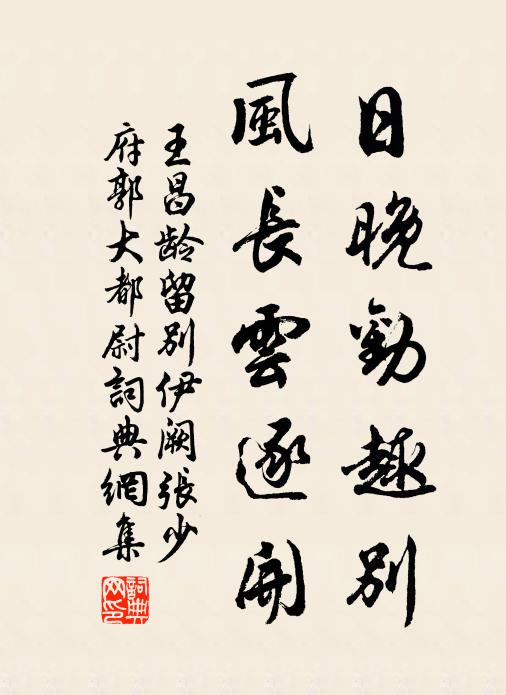 日晚勸趣別
風長雲逐開
王昌龄留別伊阙張少
府郭大都尉詞典網集
詞典
网印